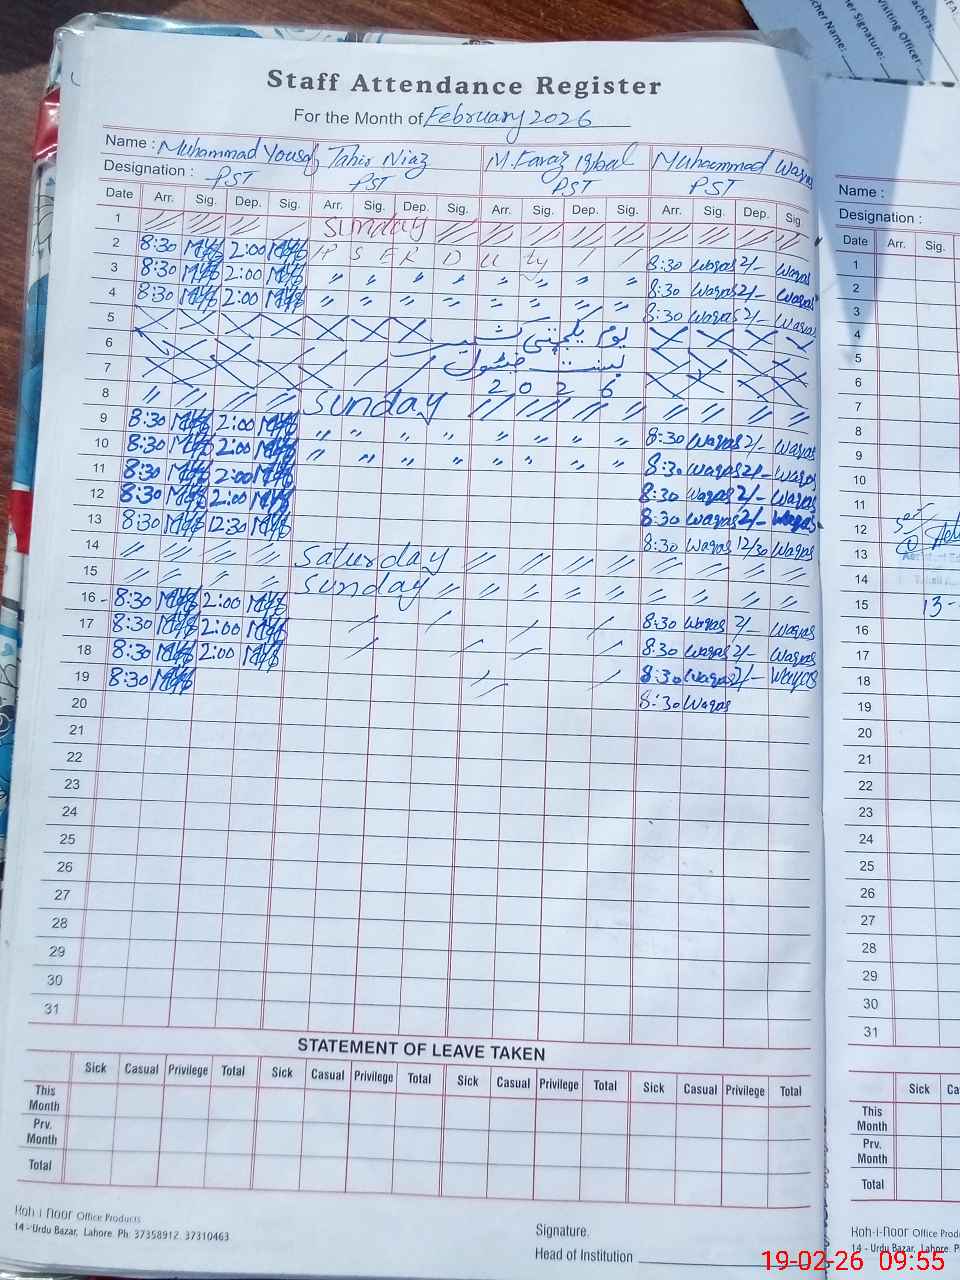 Staff Attendance Register
For the Month of February 2026
Name : Muhammad Yousaf Tahir Niaz M. Faraz Iqbal Muhammad Waqas
Designation : PST PST PST PST
Date Arr. Sig. Dep. Sig. Arr. Sig. Dep. Sig. Arr. Sig. Dep. Sig. Arr. Sig. Dep. Sig.
1 Sunday
2 8:30 2:00 PSER DUTY 8:30 Waqas 2/- Waqas
3 8:30 2:00 " " " " " " " " 8:30 Waqas 2/- Waqas
4 8:30 2:00 " " " " " " " " 8:30 Waqas 2/- Waqas
5 یوم یکجہتی کشمیر
6 بسنت فیسٹیول
7 2026
8 Sunday
9 8:30 2:00 " " " " " " " " 8:30 Waqas 2/- Waqas
10 8:30 2:00 " " " " " " " " 8:30 Waqas 2/- Waqas
11 8:30 2:00 8:30 Waqas 2/- Waqas
12 8:30 2:00 8:30 Waqas 2/- Waqas
13 8:30 12:30 8:30 Waqas 12/30 Waqas
14 Saturday
15 Sunday
16 - 8:30 2:00 8:30 Waqas 2/- Waqas
17 8:30 2:00 8:30 Waqas 2/- Waqas
18 8:30 2:00 8:30 Waqas 2/- Waqas
19 8:30 8:30 Waqas
20
21
22
23
24
25
26
27
28
29
30
31
STATEMENT OF LEAVE TAKEN
Sick Casual Privilege Total Sick Casual Privilege Total Sick Casual Privilege Total Sick Casual Privilege Total
This Month
Prv. Month
Total
Koh-i-Noor Office Products
14 - Urdu Bazar, Lahore. Ph: 37358912. 37310463
Signature.
Head of Institution
Name :
Designation :
Date Arr. Sig.
1
2
3
4
5
6
7
8
9
10
11
12
13
14
15 13-
16
17
18
19
20
21
22
23
24
25
26
27
28
29
30
31
Sick
This Month
Prv. Month
Total
Koh-i-Noor Office
14 - Urdu Bazar, Lahore.
Visiting Officer:
Signature:
Name:
19-02-26 09:55